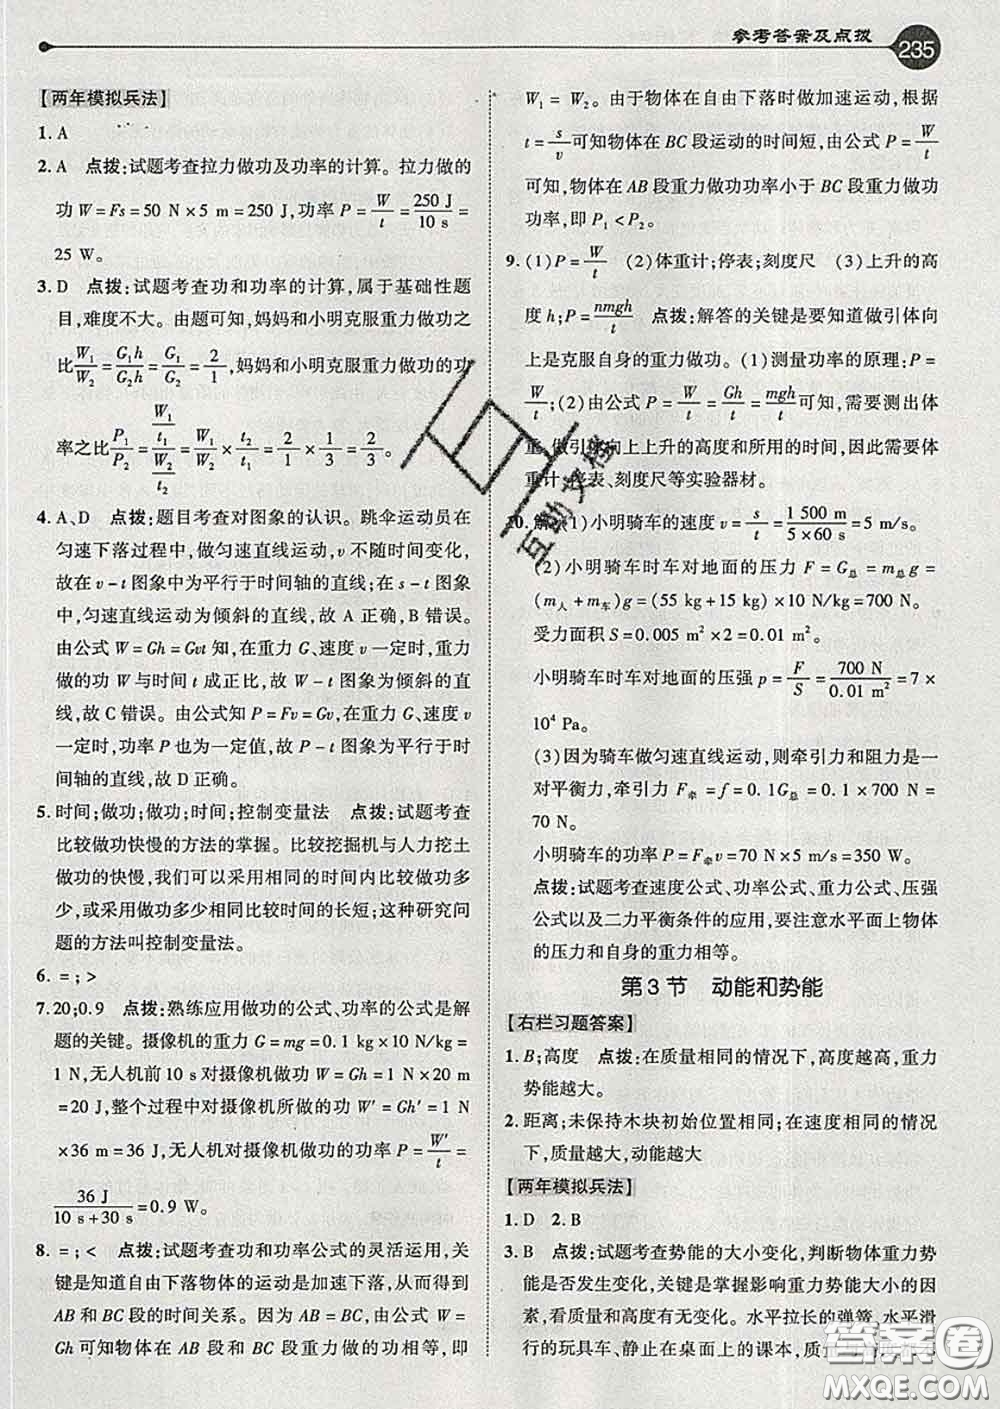 参考答案及点拨
235
【两年模拟兵法】
1. A
2. A 点拨:试题考查拉力做功及功率的计算。拉力做的
功 W = Fs = 50 N × 5 m = 250 J,功率 P = W/t = 250 J/10 s =
25 W。
3. D 点拨:试题考查功和功率的计算,属于基础性题
目,难度不大。由题可知,妈妈和小明克服重力做功之
比 W₁/W₂ = G₁h/G₂h = G₁/G₂ = 2/1,妈妈和小明克服重力做功的功
率之比 P₁/P₂ = (W₁/t₁)/(W₂/t₂) = W₁/W₂ × t₂/t₁ = 2/1 × 1/3 = 2/3。
4. A、D 点拨:题目考查对图象的认识。跳伞运动员在
匀速下落过程中,做匀速直线运动,v 不随时间变化,
故在 v - t 图象中为平行于时间轴的直线;在 s - t 图
象中,匀速直线运动为倾斜的直线,故 A 正确,B 错误。
由公式 W = Gh = Gvt 知,在重力 G、速度 v 一定时,重力
做的功 W 与时间 t 成正比,故 W - t 图象为倾斜的直
线,故 C 错误。由公式知 P = Fv = Gv,在重力 G、速度 v
一定时,功率 P 也为一定值,故 P - t 图象为平行于时
间轴的直线,故 D 正确。
5. 时间;做功;做功;时间;控制变量法 点拨:试题考查
比较做功快慢的方法的掌握。比较挖掘机与人力挖土
做功的快慢,我们可以采用相同的时间内比较做功多
少,或采用做功多少相同比较时间的长短;这种研究问
题的方法叫控制变量法。
6. = ; >
7. 20;0.9 点拨:熟练应用做功的公式、功率的公式是解
题的关键。摄像机的重力 G = mg = 0.1 kg × 10 N/kg =
1 N,无人机前 10 s 对摄像机做功为 W = Gh = 1 N × 20 m
= 20 J,整个过程中对摄像机所做的功 W′ = Gh′ = 1 N
× 36 m = 36 J,无人机对摄像机做功的功率 P = W′/t =
36 J/(10 s + 30 s) = 0.9 W。
8. = ; < 点拨:试题考查功和功率公式的灵活运用,关
键是知道自由下落物体的运动是加速下落,从而得到
AB 和 BC 段的时间关系。因为 AB = BC,由公式 W =
Gh 可知物体在 AB 段和 BC 段重力做功的功相等,即
W₁ = W₂。由于物体在自由下落时做加速运动,根据
t = s/v 可知物体在 BC 段运动的时间短,由公式 P = W/t
可知,物体在 AB 段重力做功功率小于 BC 段重力做功
功率,即 P₁ < P₂。
9. (1)P = W/t (2)体重计;停表;刻度尺 (3)上升的高
度 h;P = nmgh/t 点拨:解答的关键是要知道做引体向
上是克服自身的重力做功。(1)测量功率的原理:P =
W/t;(2)由公式 P = W/t = Gh/t = mgh/t 可知,需要测出体
重、做引体向上上升的高度和所用的时间,因此需要体
重计、停表、刻度尺等实验器材。
10. 解:(1)小明骑车的速度 v = s/t = 1 500 m/(5 × 60 s) = 5 m/s。
(2)小明骑车时车对地面的压力 F = G总 = m总g =
(m人 + m车)g = (55 kg + 15 kg) × 10 N/kg = 700 N。
受力面积 S = 0.005 m² × 2 = 0.01 m²。
小明骑车时车对地面的压强 p = F/S = 700 N/0.01 m² = 7 ×
10⁴ Pa。
(3)因为骑车做匀速直线运动,则牵引力和阻力是一
对平衡力,牵引力 F牵 = f = 0.1G总 = 0.1 × 700 N =
70 N。
小明骑车的功率 P = F牵v = 70 N × 5 m/s = 350 W。
点拨:试题考查速度公式、功率公式、重力公式、压强
公式以及二力平衡条件的应用,要注意水平面上物体
的压力和自身的重力相等。
第 3 节 动能和势能
【右栏习题答案】
1. B;高度 点拨:在质量相同的情况下,高度越高,重力
势能越大。
2. 距离;未保持木块初始位置相同;在速度相同的情况
下,质量越大,动能越大
【两年模拟兵法】
1. D 2. B
3. B 点拨:试题考查势能的大小变化,判断物体重力势
能是否发生变化,关键是掌握影响重力势能大小的因
素,看质量和高度有无变化。水平拉长的弹簧、水平滑
行的玩具车、静止在桌面上的课本,质量
百度互助文档
答案圈
MXQE.COM